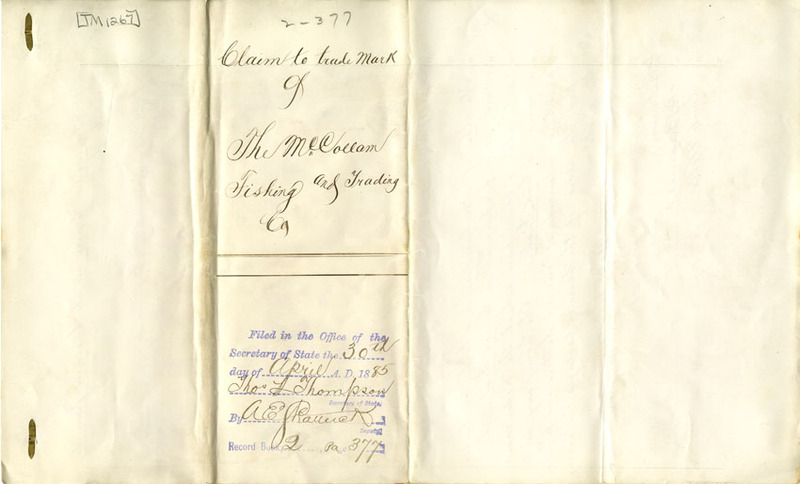 [TM1267]
2-377
Claim to trade mark
of
The McCollam
Fishing and Trading
Co
Filed in the Office of the
Secretary of State the 30th
day of April A.D. 1885
Thos L Thompson
Secretary of State.
By A E
Deputy
Record Book 2 Pa 377